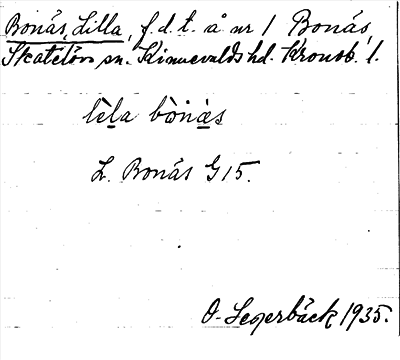 Bonås, Lilla, f.d.t. å nr 1 Bonås,
Skatelövs sn. Kinnevalds hd. Kronob. l.
lèla bònàs
L. Bonås G15.
O. Segerbäck 1935.